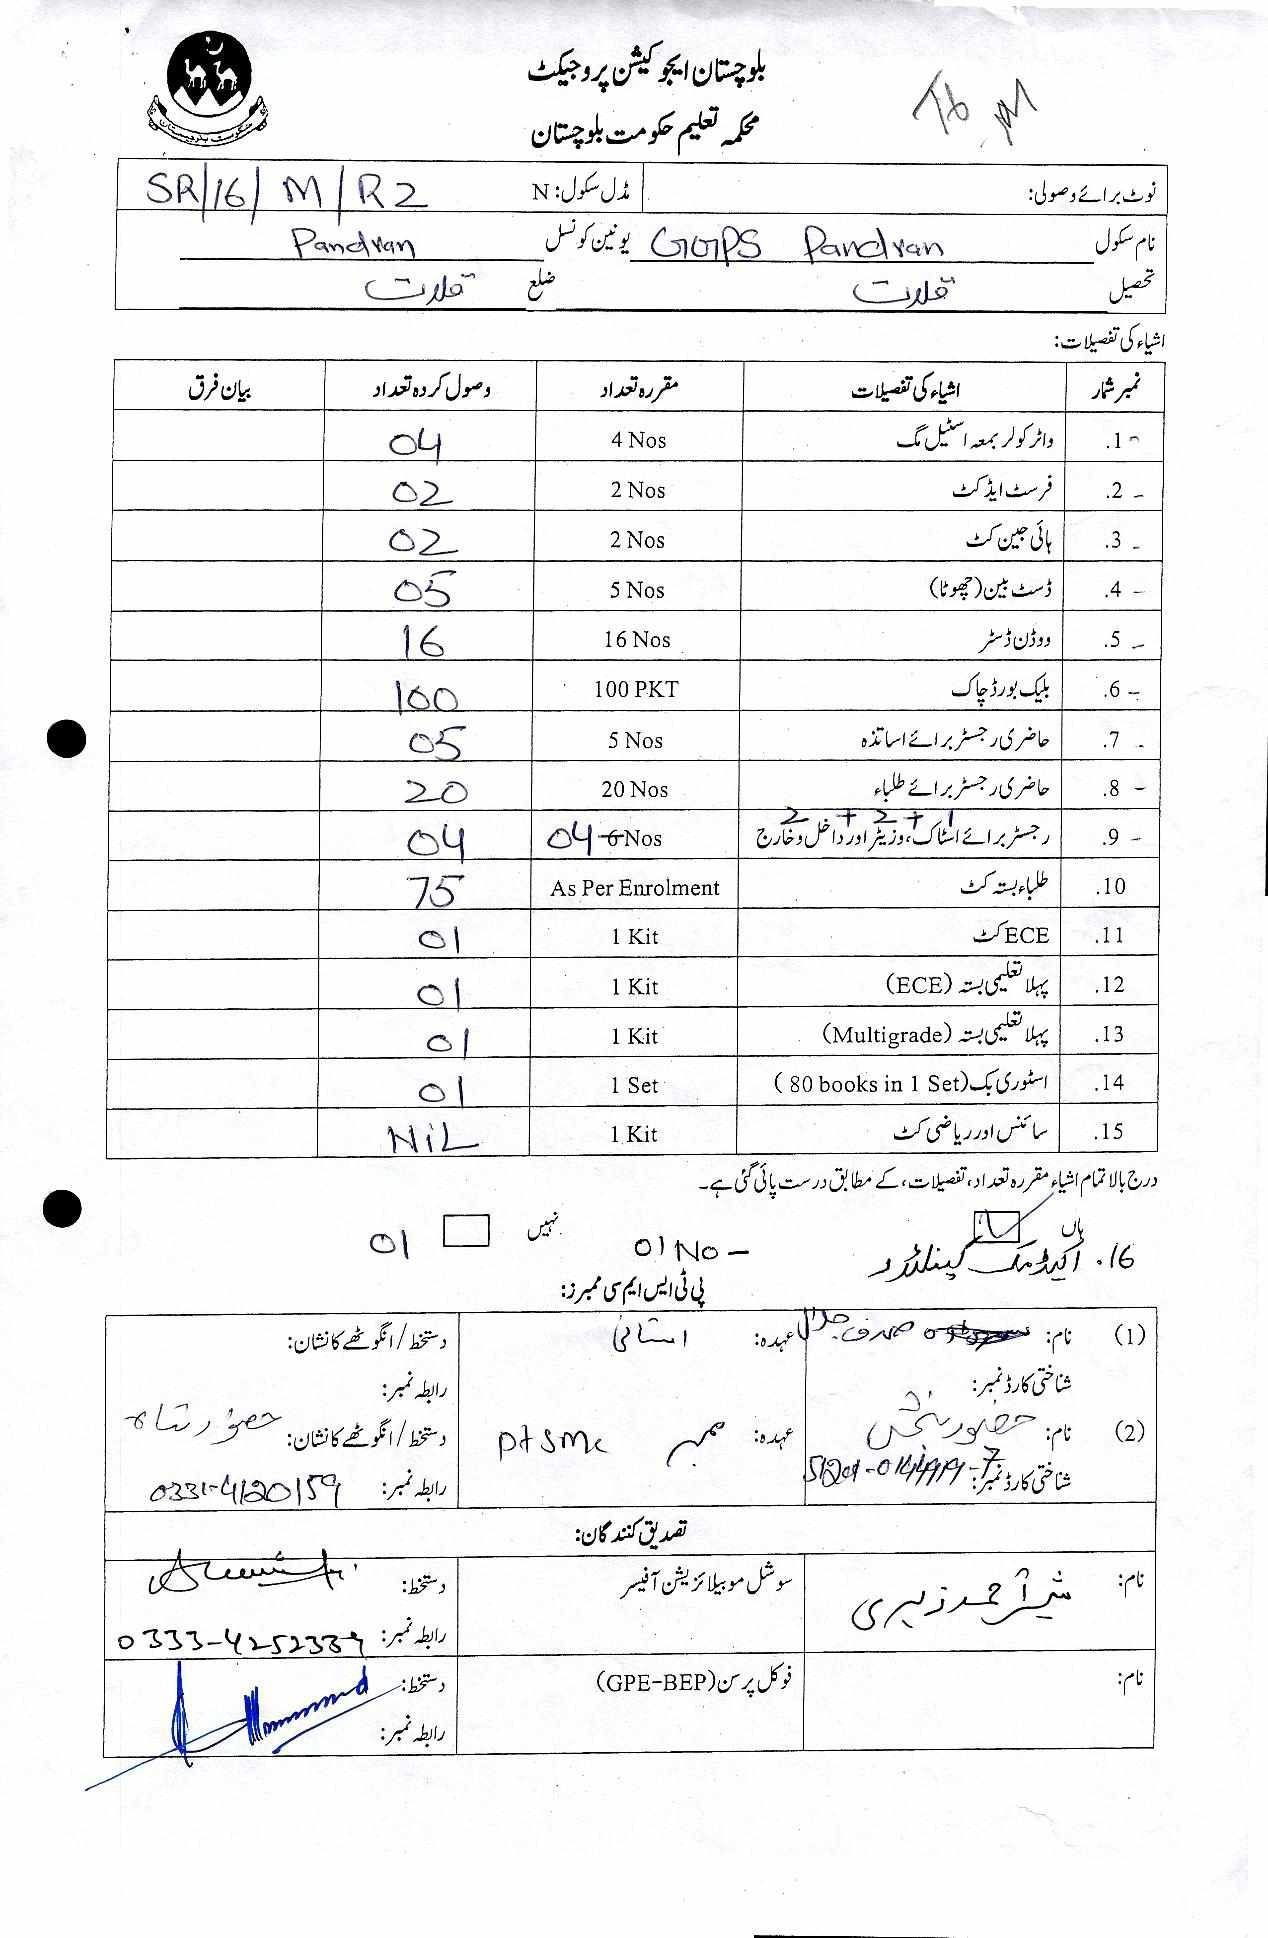 بلوچستان ایجوکیشن پروجیکٹ
محکمہ تعلیم حکومت بلوچستان
نوٹ برائے وصولی: مڈل سکول: N SR/16/M/R2
نام سکول GGPS Pandran یونین کونسل Pandran
تحصیل قلات ضلع قلات
اشیاء کی تفصیلات:
نمبر شمار اشیاء کی تفصیلات مقررہ تعداد وصول کردہ تعداد بیان فرق
1. واٹر کولر بمعہ اسٹیل مگ 4 Nos 04
2. فرسٹ ایڈ کٹ 2 Nos 02
3. ہائی جین کٹ 2 Nos 02
4. ڈسٹ بین (چھوٹا) 5 Nos 05
5. ووڈن ڈسٹر 16 Nos 16
6. بلیک بورڈ چاک 100 PKT 100
7. حاضری رجسٹر برائے اساتذہ 5 Nos 05
8. حاضری رجسٹر برائے طلباء 20 Nos 20
2 + 2 + 1
9. رجسٹر برائے اسٹاک، وزیٹر اور داخل و خارج 04 6 Nos 04
10. طلباء بستہ کٹ As Per Enrolment 75
11. ECE کٹ 1 Kit 01
12. پہلا تعلیمی بستہ (ECE) 1 Kit 01
13. پہلا تعلیمی بستہ (Multigrade) 1 Kit 01
14. اسٹوری بک (80 books in 1 Set) 1 Set 01
15. سائنس اور ریاضی کٹ 1 Kit NiL
درج بالا تمام اشیاء مقررہ تعداد، تفصیلات، کے مطابق درست پائی گئی ہے۔
ہاں نہیں
16. اکیڈمک کیلنڈر 01 No - 01
پی ٹی ایس ایم سی ممبرز:
(1) نام: صدف جلال عہدہ: استانی دستخط / انگوٹھے کا نشان:
شناختی کارڈ نمبر: رابطہ نمبر:
(2) نام: حضور بخش عہدہ: ممبر PTSMC دستخط / انگوٹھے کا نشان:
شناختی کارڈ نمبر: رابطہ نمبر: 0331-4120159
تصدیق کنندگان:
نام: سوشل موبیلائزیشن آفیسر دستخط:
رابطہ نمبر: 0333-4252339
نام: فوکل پرسن (GPE-BEP) دستخط:
رابطہ نمبر: